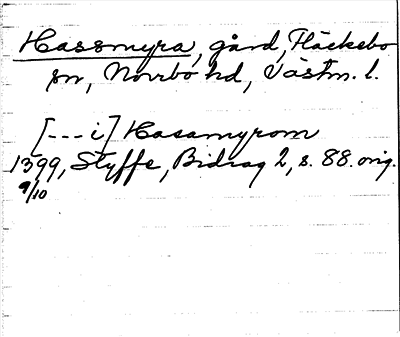 Hassmyra, gård, Fläckebo
sn, Norrbo hd, Västm. l.
[--- i] Hasamyrom
1399, Styffe, Bidrag 2, s. 88. orig.
9/10